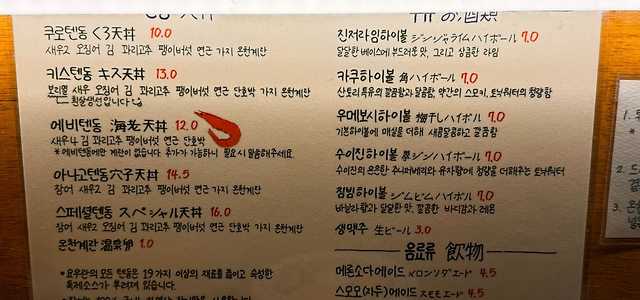 쿠로텐동 くろ天丼 10.0
새우2 오징어 김 꽈리고추 팽이버섯 연근 가지 온천계란
키스텐동 キス天丼 13.0
보리멸 새우 오징어 김 꽈리고추 팽이버섯 연근 단호박 가지 온천계란
흰살생선입니다
에비텐동 海老天丼 12.0
새우4 김 꽈리고추 팽이버섯 연근 단호박
* 에비텐동에만 계란이 없습니다. 추가가 가능하니 필요시 말씀해주세요.
아나고텐동 穴子天丼 14.5
장어 새우2 김 꽈리고추 팽이버섯 연근 가지 온천계란
스페셜텐동 スペシャル天丼 16.0
장어 새우 오징어 김 꽈리고추 팽이버섯 연근 단호박 가지 온천계란
온천계란 温泉卵 1.0
• 요우란의 모든 텐동은 19가지 이상의 재료를 졸이고 숙성한
특제소스가 뿌려져 있습니다.
お酒類
진저라임하이볼 ジンジャライムハイボール 7.0
달달한 베이스에 부드러운 맛, 그리고 상큼한 라임
카쿠하이볼 角ハイボール 7.0
산토리 특유의 깔끔함과 달콤함, 약간의 스모키, 토닉워터의 청량함
우메보시하이볼 梅干しハイボール 7.0
기본하이볼에 매실을 더해 새콤달콤하고 깔끔함
수이진하이볼 ジンハイボール 7.0
수이진의 은은한 주니퍼베리와 유자향에 청량을 더해주는 토닉워터
짐빔하이볼 ジムビムハイボル 7.0
바닐라향과 달달한 맛, 깔끔한 바디감과 레몬
생맥주 生ビール 3.0
음료류 飲物
메론소다에이드 メロンソダエード 4.5
스모모(자두)에이드 スモモエード 4.5
1.
*
2.
3.